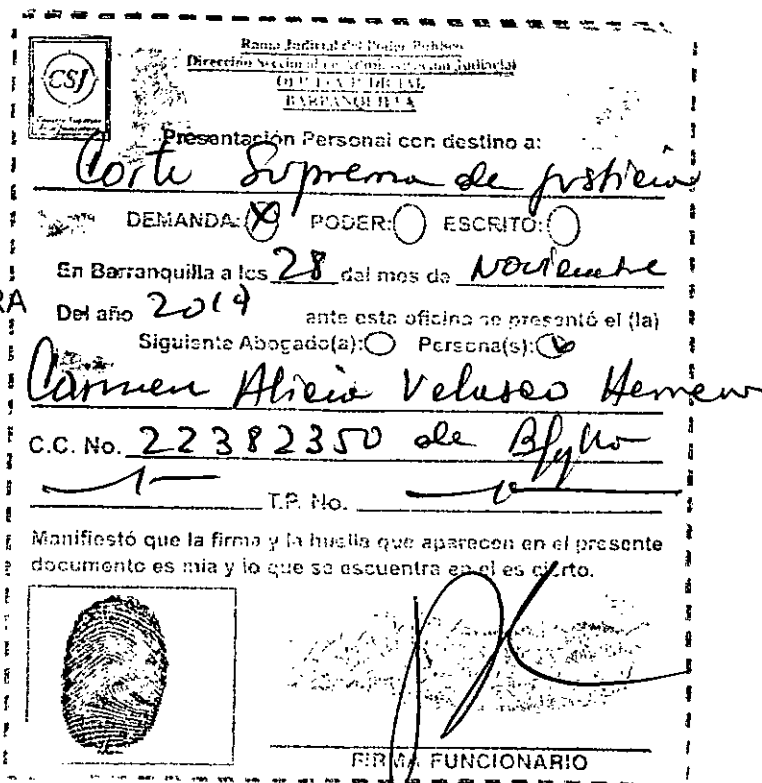 Rama Judicial del Poder Público
Dirección Seccional de Administración Judicial
BARRANQUILLA
CSJ
Presentación Personal con destino a:
Corte Suprema de justicia
DEMANDA: X PODER: ESCRITO:
En Barranquilla a los 28 del mes de Noviembre
RA
Del año 2019 ante esta oficina se presentó el (la)
Siguiente Abogado(a): Persona(s):
Carmen Alicia Velasco Herrera
C.C. No. 22382350 de
T.P. No.
Manifiestó que la firma y la huella que aparecen en el presente
documento es mia y lo que se escuentra en el es cierto.
FIRMA FUNCIONARIO